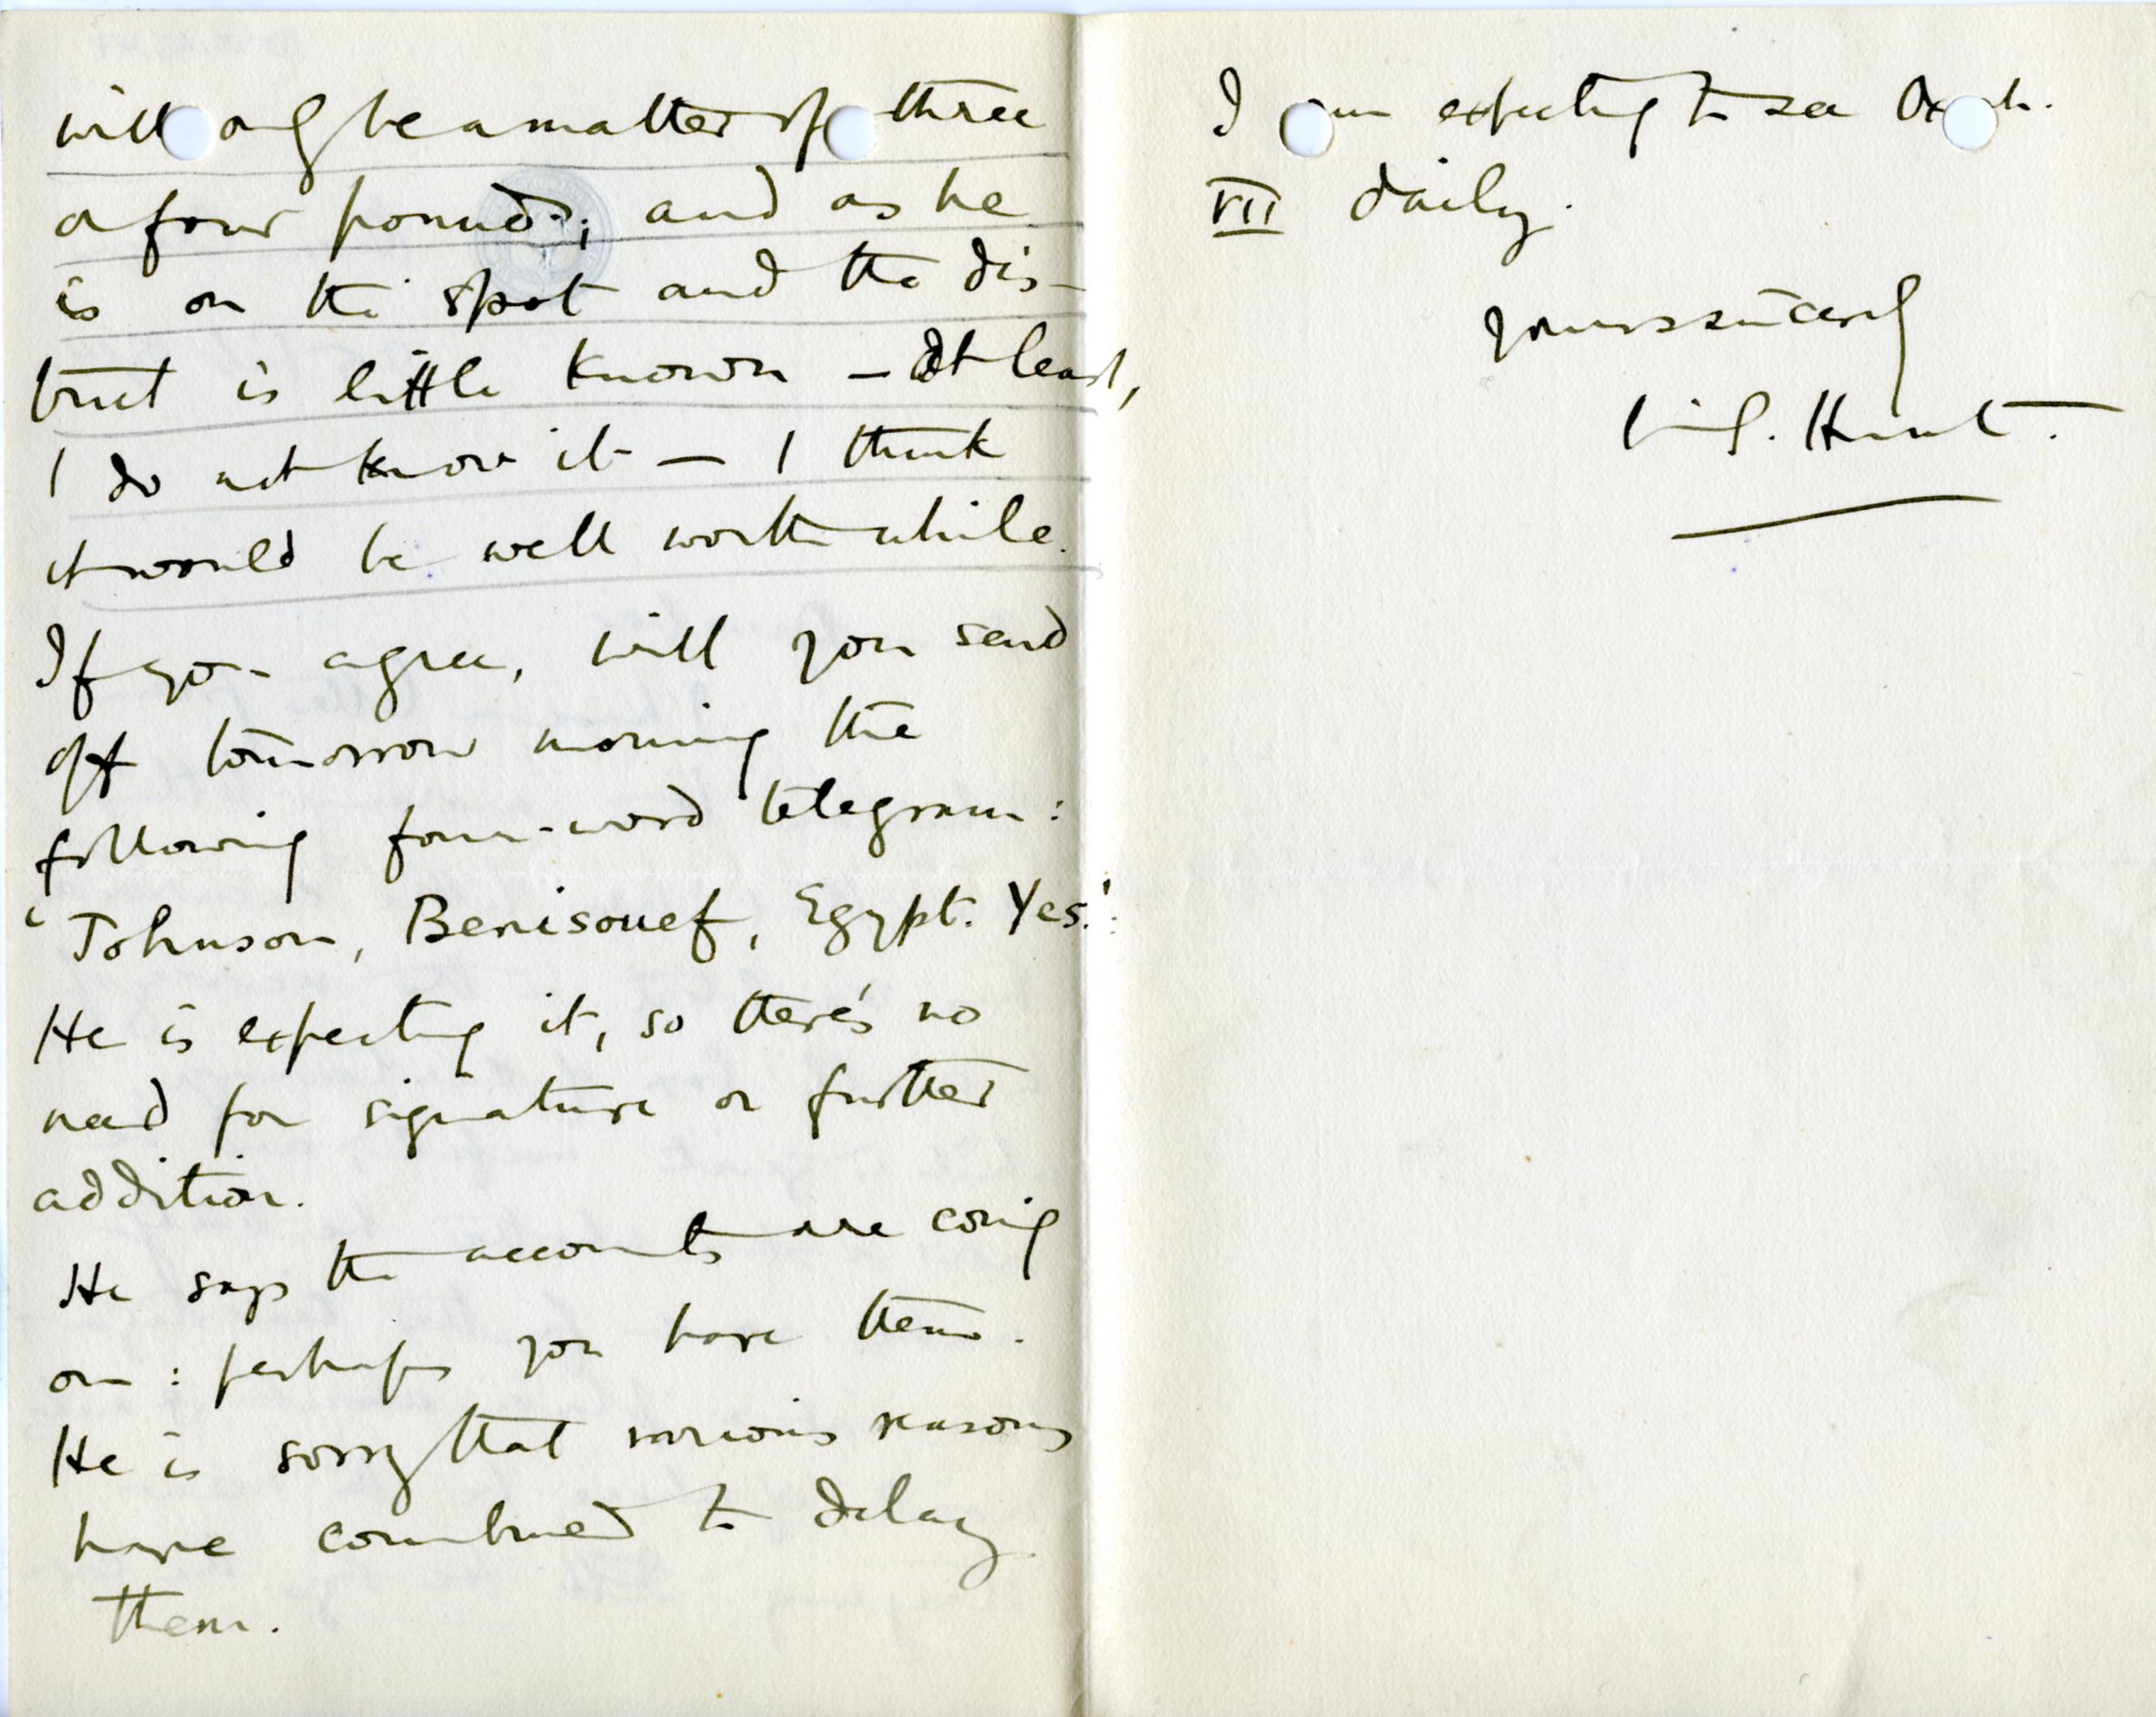 will only be a matter of three
or four pounds; and as he
is on the spot and the dis-
trict is little known – At least,
I do not know it – I think
it would be well worth while.
If you agree, will you send
off tomorrow morning the
following four-word telegram:
'Johnson, Benisouef, Egypt. Yes.'
He is expecting it, so there's no
need for signature or further
addition.
He says the accounts are coming
on: perhaps you have them.
He is sorry that various reasons
have combined to delay
them.
I am expecting to see
VII daily.
Yours sincerely
Hunt.